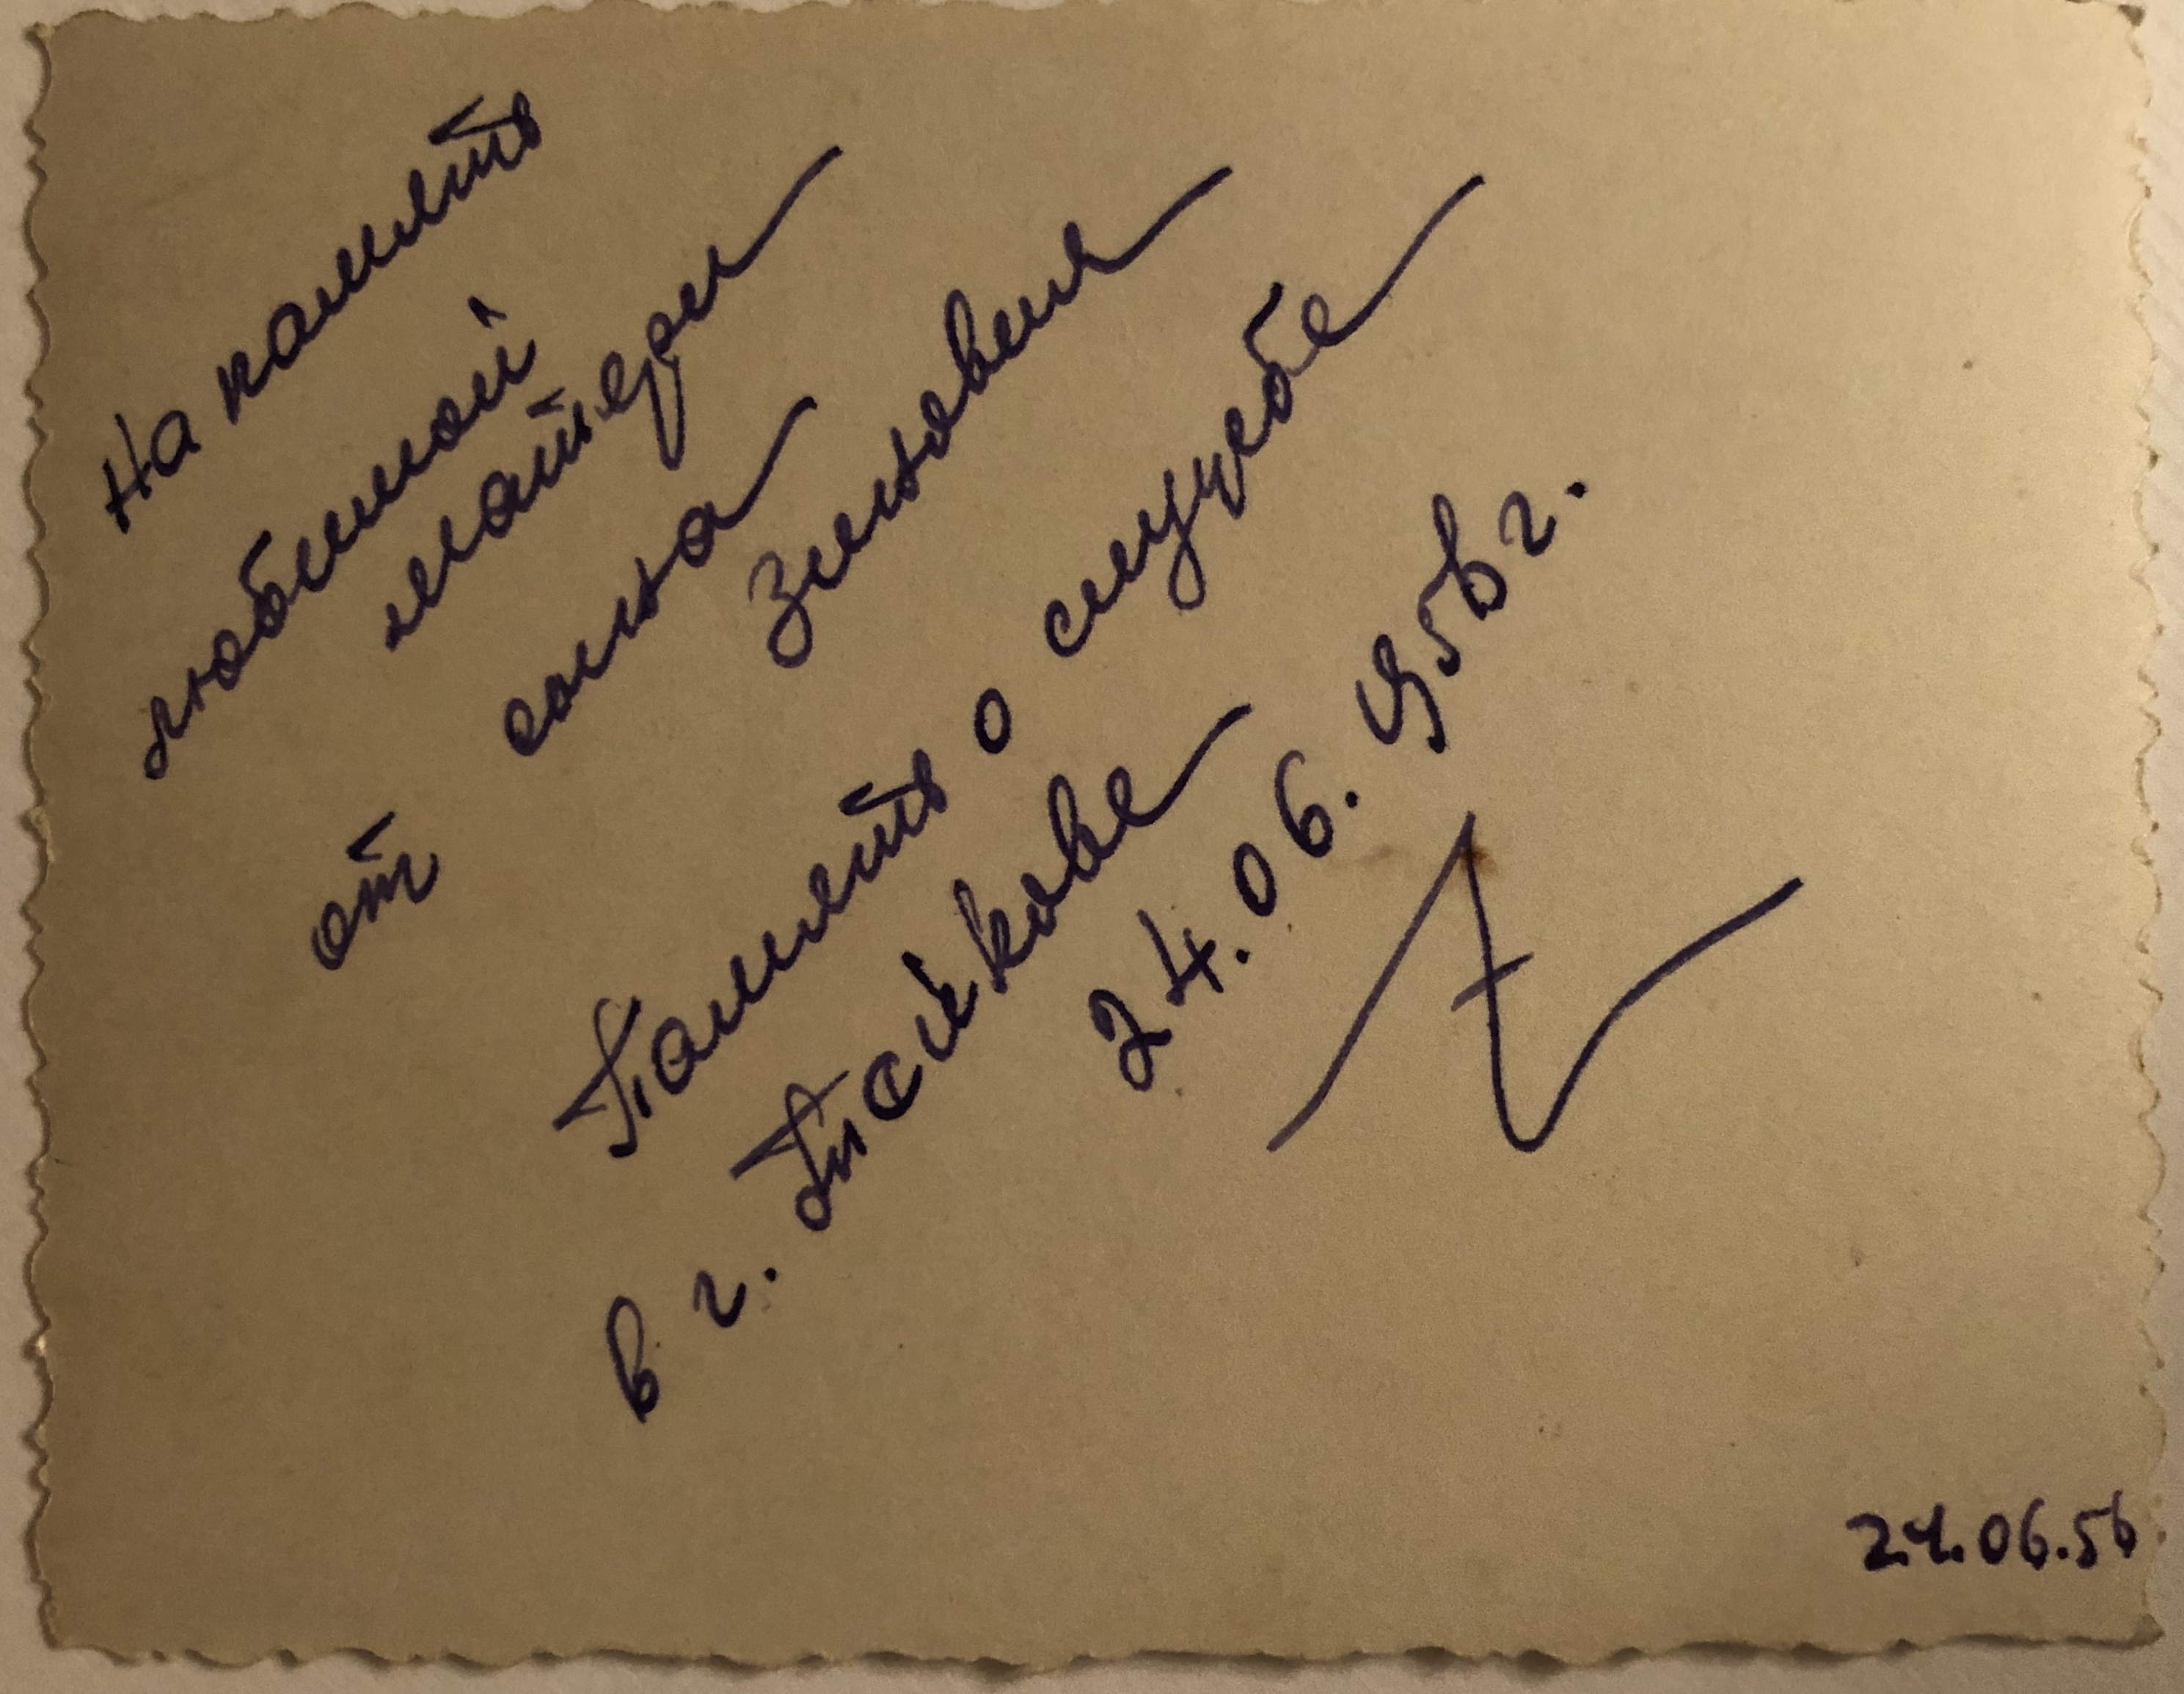 На память
любимой
матери
от сына
Зиновия
Память о службе
в г.
24.06.1956 г.
24.06.56